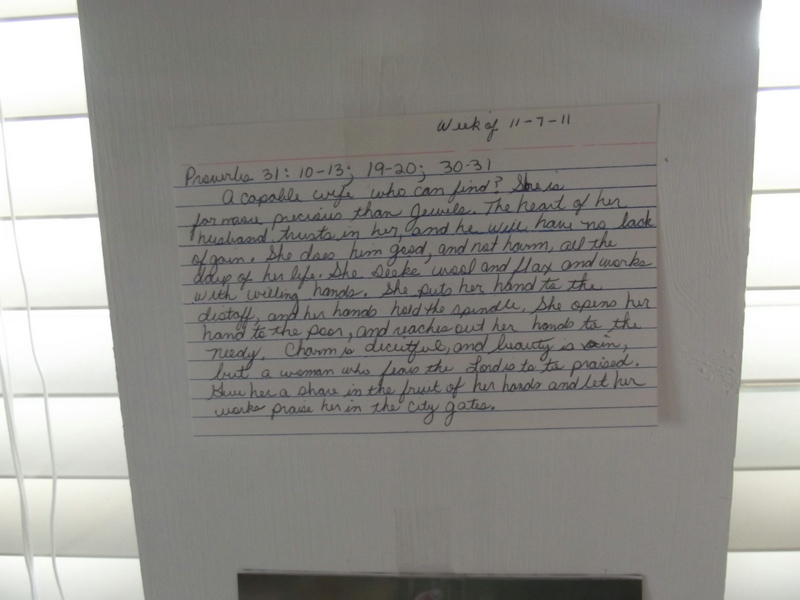 Week of 11-7-11
Proverbs 31: 10-13; 19-20; 30-31
A capable wife who can find? She is
far more precious than Jewels. The heart of her
husband trusts in her, and he will have no lack
of gain. She does him good, and not harm, all the
days of her life. She seeks wool and flax and works
with willing hands. She puts her hand to the
distaff, and her hands hold the spindle. She opens her
hand to the poor, and reaches out her hands to the
needy. Charm is deceitful, and beauty is vain,
but a woman who fears the Lord is to to praised.
Give her a share in the fruit of her hands and let her
works praise her in the city gates.